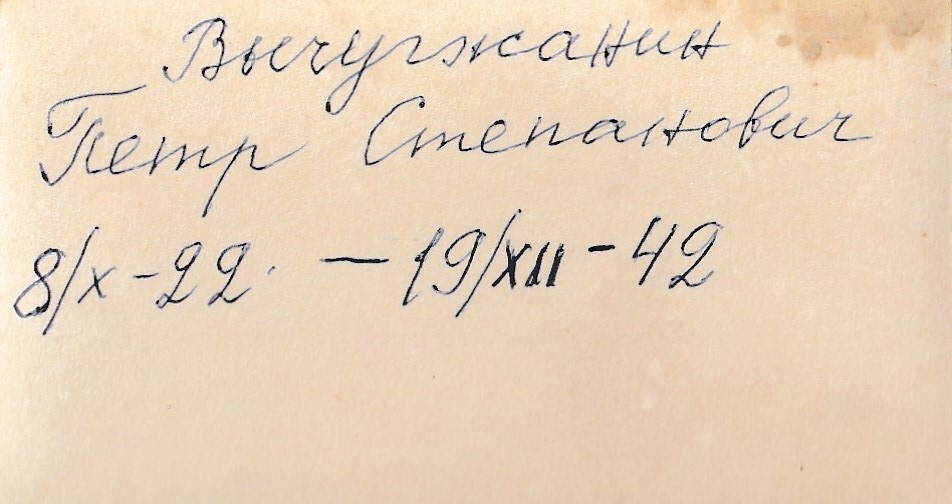 Вычугжанин
Петр Степанович
8/X-22. — 19/XII-42